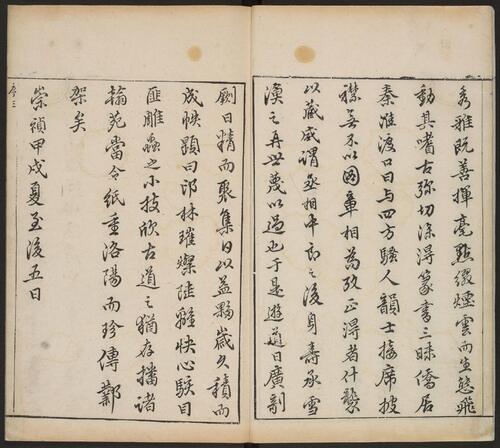 秀雅既善揮毫點綴煙雲而生態飛
動其嗜古弥切深得篆書三昧僑居
秦淮渡口日与四方騷人韻士接席披
襟無不以圖章相為攷正得者什襲
以藏咸謂丞相中郎之後身壽承雪
漁之再世蔑以過也于是遊道日廣剞
劂日精而聚集日以益夥歲久積而
成帙顕曰印林璀燦陸離快心駭目
匪雕蟲之小技欣古道之猶存播諸
翰苑當令紙重洛陽而珍傳鄴
架矣
崇禎甲戌夏至後五日
序三